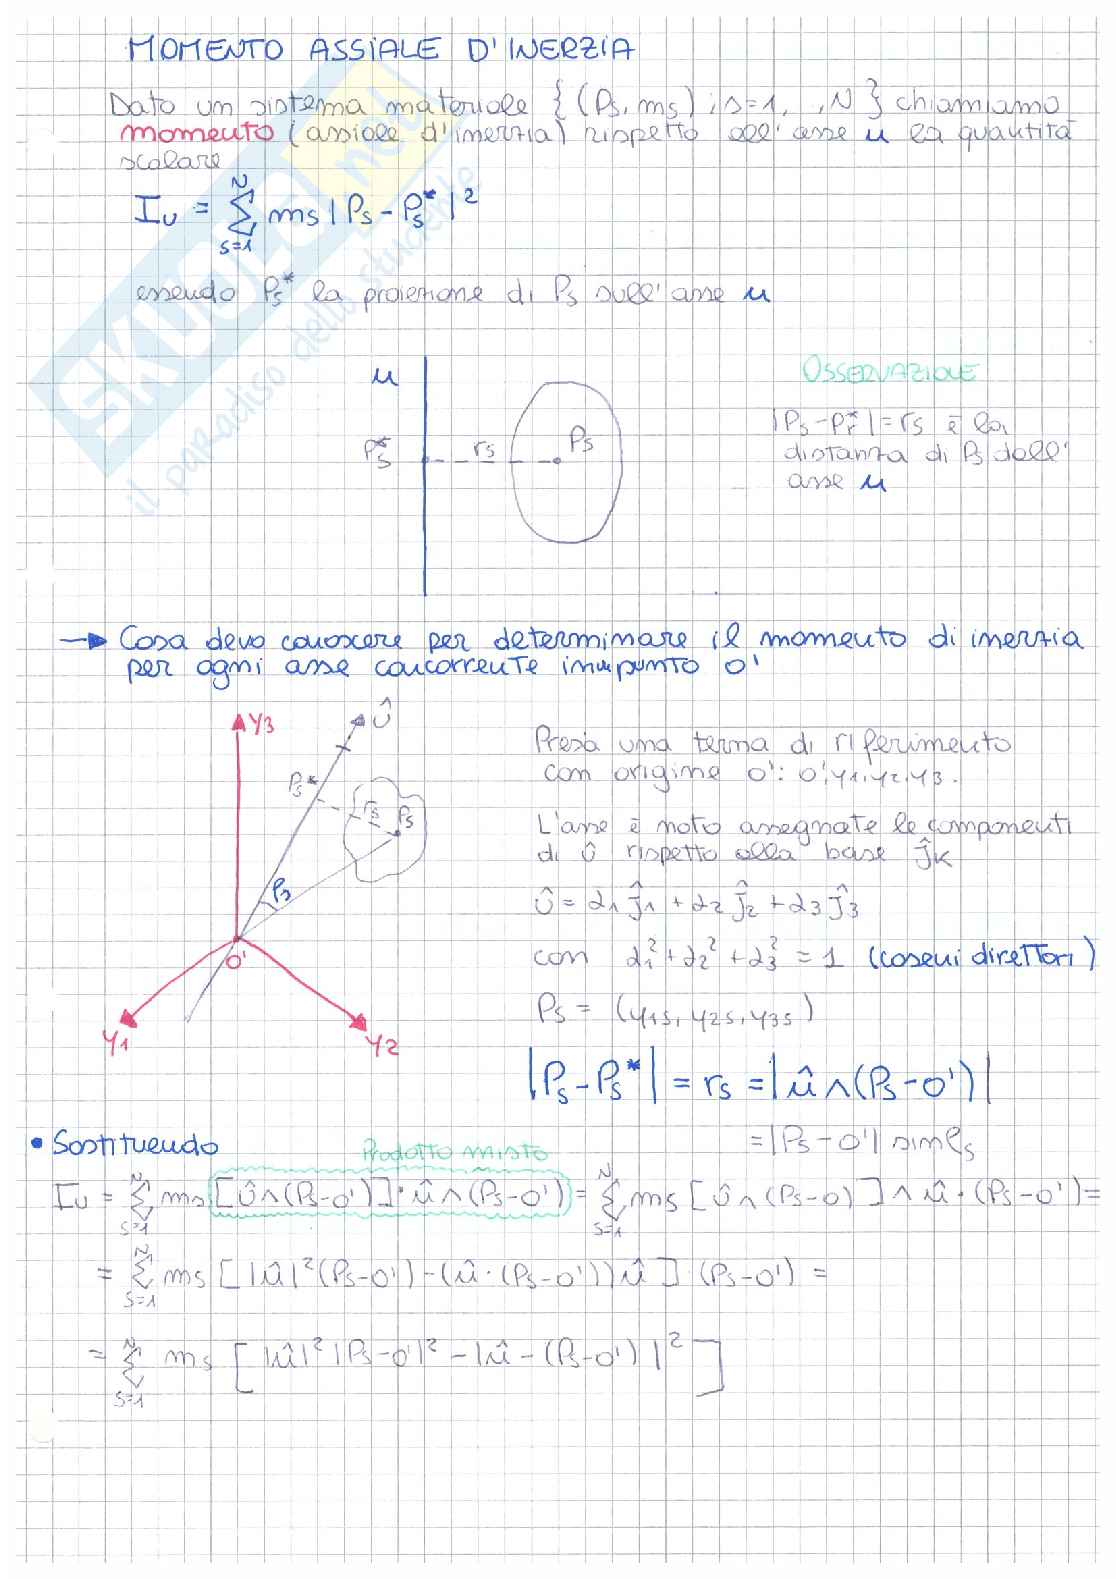 MOMENTO ASSIALE D'INERZIA
Dato un sistema materiale {(Ps, ms) ; s=1, ,N } chiamiamo
momento (assiale d'inerzia) rispetto all'asse u la quantità
scalare
Iu = Σ_{s=1}^{N} ms | Ps - Ps* |²
essendo Ps* la proiezione di Ps sull'asse u
u
Ps*
rs
Ps
OSSERVAZIONE
|Ps - Pr*| = rs è la
distanza di Ps dall'
asse u
→ Cosa devo conoscere per determinare il momento di inerzia
per ogni asse concorrente in un punto O'
y3
û
Ps*
rs
Ps
O'
y1
y2
Presa una terna di riferimento
con origine O': O',y1,y2,y3.
L'asse è noto assegnate le componenti
di û rispetto alla base ĵK
û = α1 ĵ1 + α2 ĵ2 + α3 ĵ3
con α1² + α2² + α3² = 1 (coseni direttori)
Ps = (y1s, y2s, y3s)
|Ps - Ps*| = rs = | û ∧ (Ps - O') |
= |Ps - O'| sin φs
• Sostituendo
Prodotto misto
Iu = Σ_{s=1}^{N} ms [û ∧ (Ps - O')] · û ∧ (Ps - O') = Σ_{s=1}^{N} ms [û ∧ (Ps - O)] ∧ û · (Ps - O') =
= Σ_{s=1}^{N} ms [ |û|² (Ps - O') - (û · (Ps - O')) û ] · (Ps - O') =
= Σ_{s=1}^{N} ms [ |û|² |Ps - O'|² - |û - (Ps - O') |² ]
SKUOLA.net
il paradiso dello studente